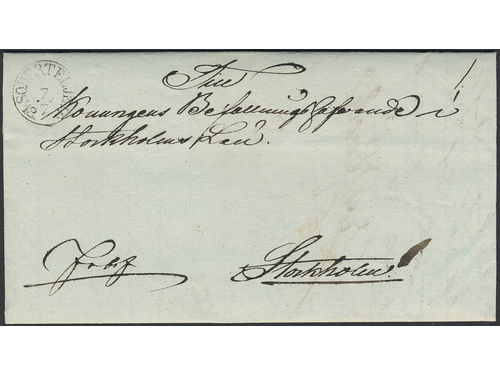 SÖDERTELJE
7
Till
Konungens Befallningshafvande i
Stockholms Län.
Stockholm